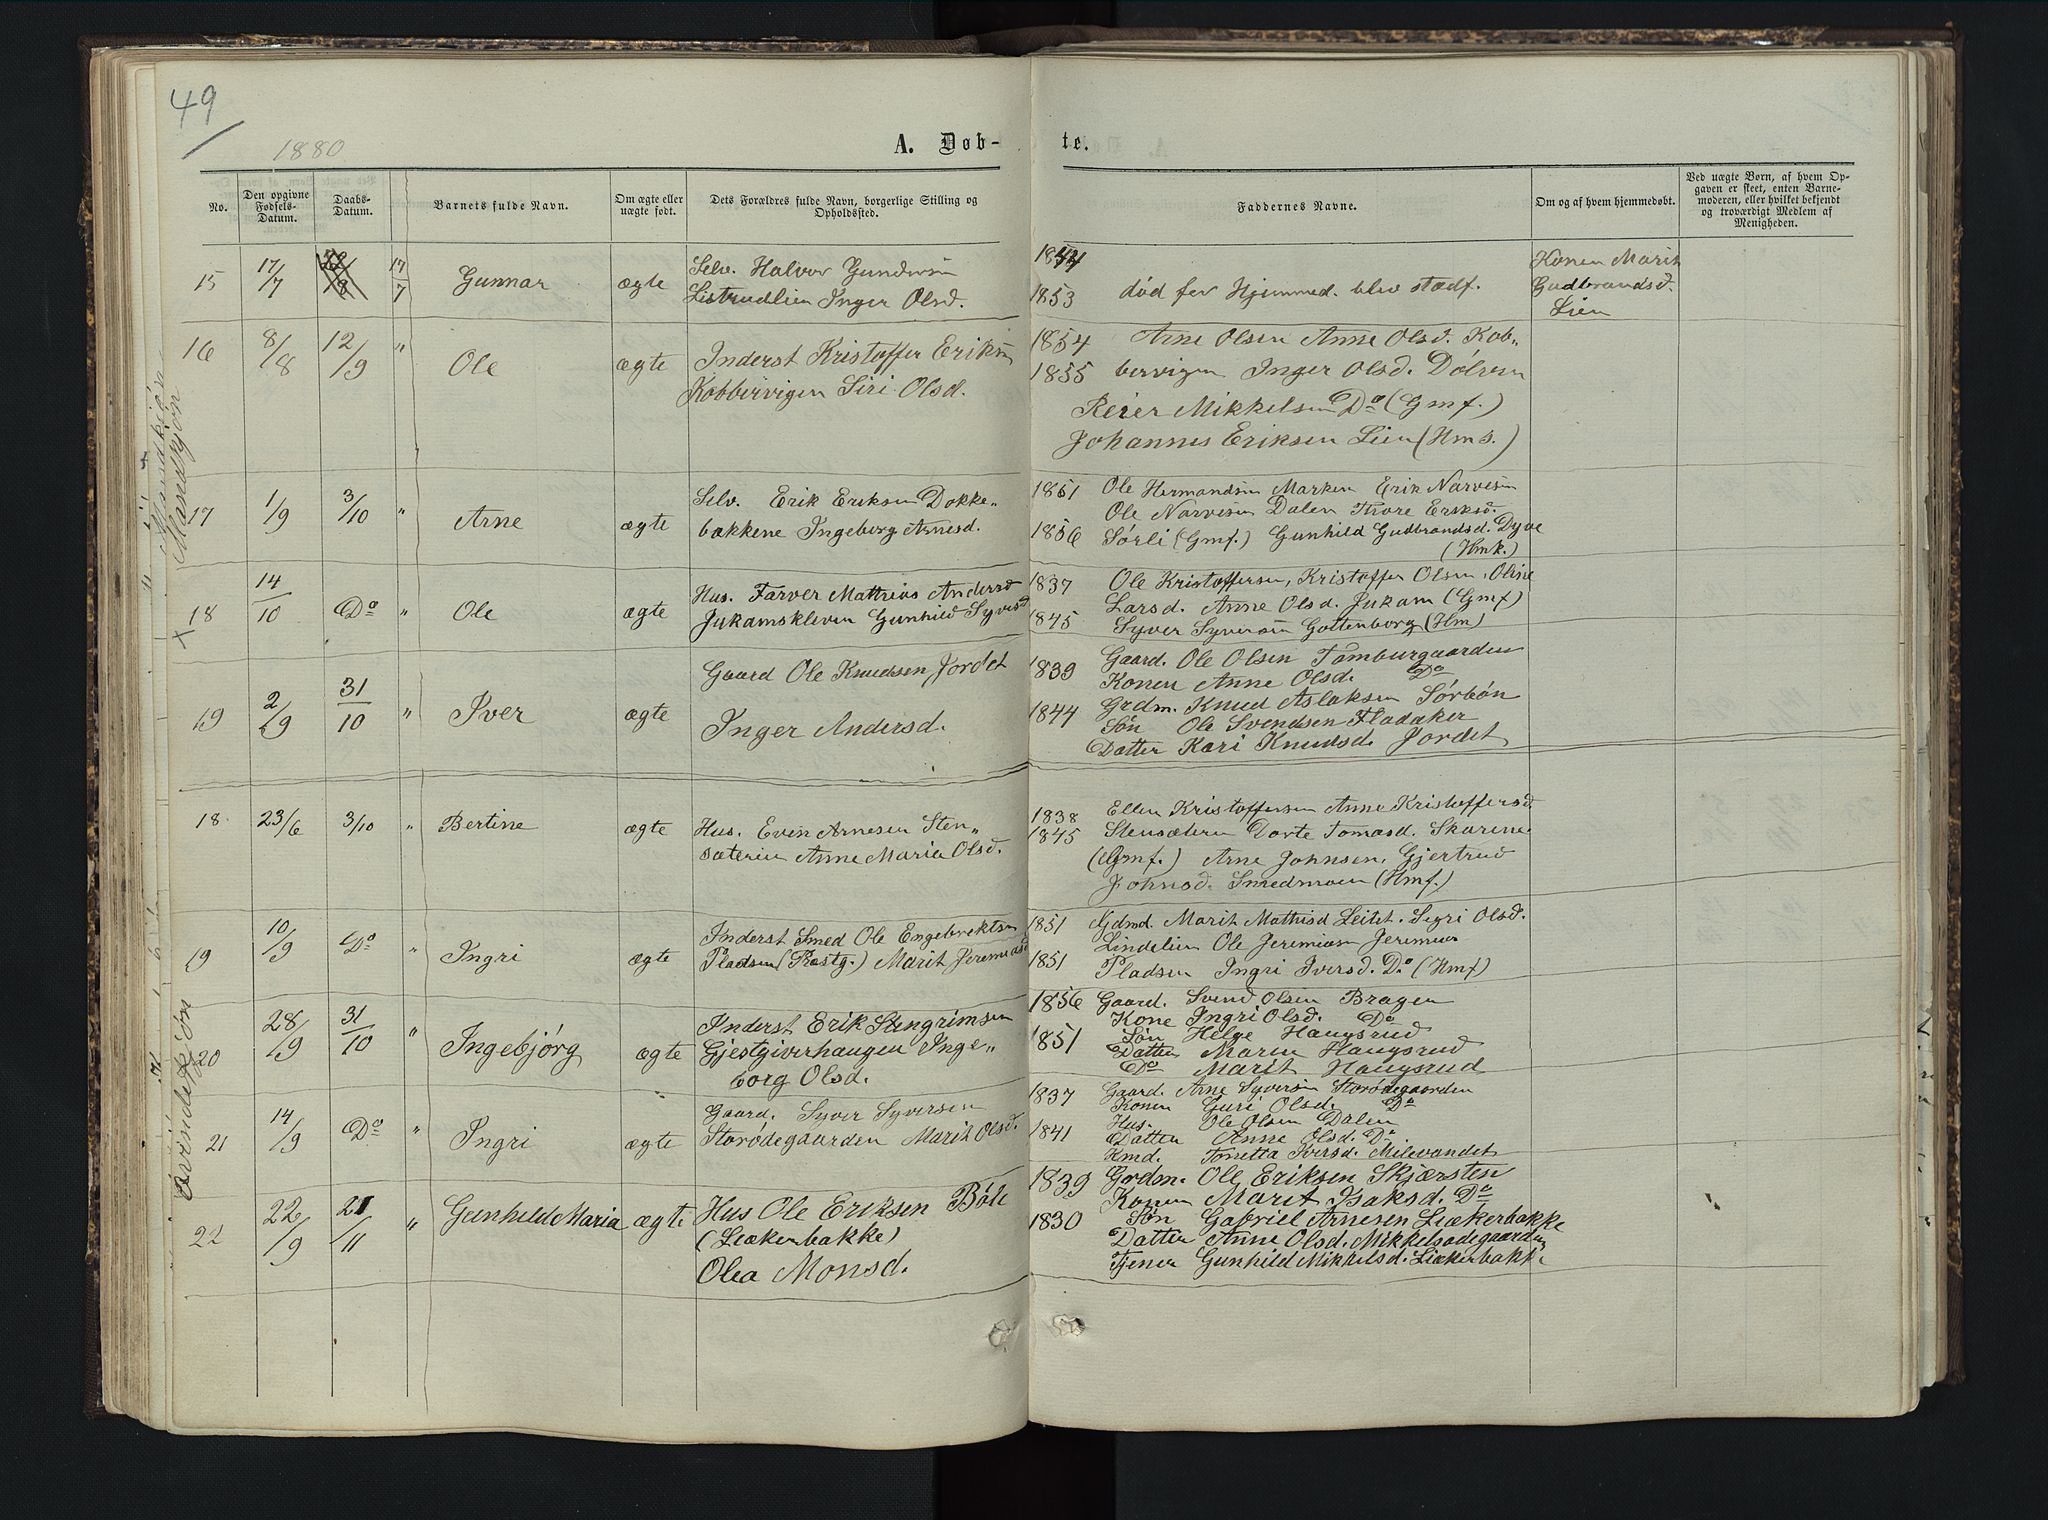 49
1880
A. Døb-
te.
No.
Den opgivne Fødsels-Datum.
Daabs-Datum.
Barnets fulde Navn.
Om ægte eller uægte født.
Dets Forældres fulde Navn, borgerlige Stilling og Opholdssted.
Faddernes Navne.
Om og af hvem hjemmedøbt.
Ved uægte Børn, af hvem Opgaven er skeet, enten Barnemoderen, eller hvilket bekjendt og troværdigt Medlem af Menigheden.
15 17/7 17/7 Gunnar ægte Selv. Halvor Gundersen
Listrudlien Inger Olsd.
1853 død før Hjemmed. blev stadf.
Konen Marit
Gudbrandsd.
Lien
16 8/8 12/9 " Ole ægte Inderst Kristoffer Eriksen
Kobbervigen Siri Olsd.
1854 Arne Olsen Anne Olsd. Kob„
1855 bervigen Inger Olsd. Dölven
Reier Mikkelsen Do (Gmf.)
Johannes Eriksen Lien (Hms.)
17 1/9 3/10 " Arne ægte Selv. Erik Eriksen Dokke„
bakkene Ingeborg Arnesd.
1851 Ole Hermandsen Marken Erik Narvesen
Ole Narvesen Dalen Thore Eriksd.
1856 Sørli (Gmf.) Gunhild Gudbrandsd. Dyve
(Hmk.)
18 14/10 Do " Ole ægte Hus. Farver Mathias Andersen
Jukamskleven Gunhild Syversd
1837 Ole Kristoffersen, Kristoffer Olsen, Oline
Larsd. Anne Olsd. Jukam (Gmf)
1845 Syver Syversen Gottenborg (Hm)
19 2/9 31/10 " Iver ægte Gaard Ole Knudsen Jordet
Inger Andersd.
1839 Gaard. Ole Olsen Tamburgaarden
Konen Anne Olsd. Do
1844 Grdm. Knud Aslaksen Sørbøn
Søn Ole Svendsen Fladaker
Datter Kari Knudsd. Jordet
18 23/6 3/10 " Bertine ægte Hus. Even Arnesen Sten„
sæterien Anne Maria Olsd.
1838 Ellen Kristoffersen Anne Kristoffersd.
1845 Stensæteren Dorte Tomasd. Skarine
(Gmf.) Arne Johnsen, Gjertrud
Johnsd. Smedmoen (Hmf.)
19 10/9 Do " Ingri ægte Inderst Smed Ole Engebrektsen
Pladsen (Præstg.) Marit Jeremiasd
1851 Gdmd. Marit Mathisd Leitet. Segri Olsd.
Lindelien Ole Jeremiasen
1851 Pladsen Ingri Iversd. Do (Hmf)
20 28/9 31/10 " Ingebjörg ægte Inderst Erik Stengrimsen
Gjestgiverhaugen Inge„
borg Olsd.
1856 Gaard. Svend Olsen Bragen
Kone Ingri Olsd. Do
1851 Søn Helge Haugsrud
Datter Maren Haugsrud
Do Marit Haugsrud
21 14/9 Do " Ingri ægte Gaard. Syver Syversen
Storødegaarden Marit Olsd.
1837 Gaard. Arne Syversen Storødegaarden
Konen Guri Olsd. Do
1841 Hus. Ole Olsen Dalen
Datter Anne Olsd. Do
Kmd. Tonetta Iversd. Milevandet
22 22/9 21/11 " Gunhild Maria ægte Hus Ole Eriksen Böle
(Liækerbakke)
Olea Monsd.
1839 Grdm. Ole Eriksen Skjærsten
Konen Marit Isaksd. Do
1830 Søn Gabriel Arnesen Liækerbakke
Datter Anne Olsd. Mikkelsødegaarden
Tjener Gunhild Mikkelsd. Liækerbakke